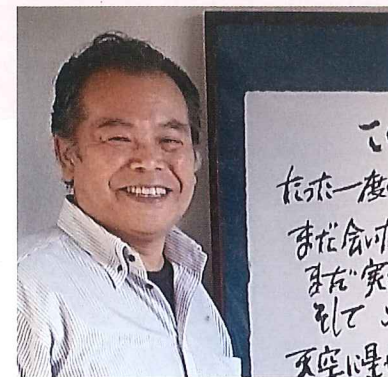 たった一度
まだ会い
まだ実
そして
天空に星